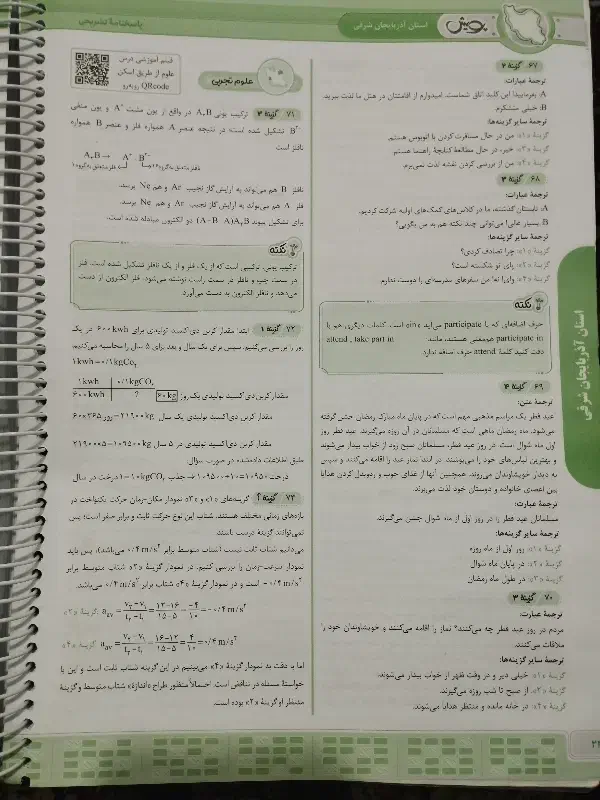 استان آذربایجان شرقی
پاسخنامهٔ تشریحی
۶۷. گزینهٔ ۴
ترجمهٔ عبارات:
A: بفرمایید! این کلید اتاق شماست. امیدوارم از اقامتتان در هتل ما لذت ببرید.
B: خیلی متشکرم
ترجمهٔ سایر گزینه‌ها:
گزینهٔ «۱»: من در حال مسافرت کردن با اتوبوس هستم.
گزینهٔ «۲»: خیر، در حال مطالعهٔ کتابچهٔ راهنما هستم.
گزینهٔ «۳»: من از بررسی کردن نقشه لذت نمی‌برم.
۶۸. گزینهٔ ۴
ترجمهٔ عبارات:
A: تابستان گذشته، ما در کلاس‌های کمک‌های اولیه شرکت کردیم.
B: بسیار عالی! می‌توانی چند نکته هم به من بگویی؟
ترجمهٔ سایر گزینه‌ها:
گزینهٔ «۱»: چرا تصادف کردی؟
گزینهٔ «۲»: پای تو شکسته است؟
گزینهٔ «۳»: وای! نه! من سفرهای مدرسه‌ای را دوست ندارم.
نکته
حرف اضافه‌ای که با participate می‌آید «in» است. کلمات دیگری هم با
participate in هم‌معنی هستند، مانند: attend , take part in
دقت کنید کلمهٔ attend حرف اضافه ندارد.
۶۹. گزینهٔ ۴
ترجمهٔ متن:
عید فطر یک مراسم مذهبی مهم است که در پایان ماه مبارک رمضان جشن گرفته
می‌شود. ماه رمضان ماهی است که مسلمانان در آن روزه می‌گیرند. عید فطر روز
اول ماه شوال است. در روز عید فطر، مسلمانان صبح زود از خواب بیدار می‌شوند
و بهترین لباس‌های خود را می‌پوشند. در ابتدا نماز عید را اقامه می‌کنند و سپس
به دیدار خویشاوندان می‌روند. همچنین آنها از غذای خوب و ردوبدل کردن هدایا
بین اعضای خانواده و دوستان خود لذت می‌برند.
ترجمهٔ عبارت:
مسلمانان عید فطر را در روز اول از ماه شوال جشن می‌گیرند.
ترجمهٔ سایر گزینه‌ها:
گزینهٔ «۱»: روز اول از ماه روزه
گزینهٔ «۲»: در پایان ماه شوال
گزینهٔ «۳»: در طول ماه رمضان
۷۰. گزینهٔ ۳
ترجمهٔ عبارت:
مردم در روز عید فطر چه می‌کنند؟ نماز را اقامه می‌کنند و خویشاوندان خود را
ملاقات می‌کنند.
ترجمهٔ سایر گزینه‌ها:
گزینهٔ «۱»: خیلی دیر و در وقت ظهر از خواب بیدار می‌شوند.
گزینهٔ «۲»: از صبح تا شب روزه می‌گیرند.
گزینهٔ «۴»: در خانه مانده و منتظر هدایا می‌شوند.
علوم تجربی
فیلم آموزشی درس
علوم از طریق اسکن
QRcode روبه‌رو
۷۱. گزینهٔ ۳ ترکیب یونی A₂B در واقع از یون مثبت A⁺ و یون منفی
B²⁻ تشکیل شده است؛ در نتیجه عنصر A همواره فلز و عنصر B همواره
نافلز است.
A₂B → A⁺ B²⁻
نافلز B هم می‌تواند به آرایش گاز نجیب Ar و هم Ne برسد.
فلز A هم می‌تواند به آرایش گاز نجیب Ar و هم Ne برسد.
برای تشکیل پیوند A₂B (A-B-A) دو الکترون مبادله شده است.
نکته
ترکیب یونی، ترکیبی است که از یک فلز و از یک نافلز تشکیل شده است. فلز
در سمت چپ و نافلز در سمت راست نوشته می‌شود. فلز الکترون از دست
می‌دهد و نافلز الکترون به دست می‌آورد.
۷۲. گزینهٔ ۱ ابتدا مقدار کربن دی‌اکسید تولیدی برای ۶۰۰ kwh در یک
روز را بررسی می‌کنیم. سپس برای یک سال و بعد برای ۵ سال را محاسبه می‌کنیم.
۱ kwh = ۰/۱ kgCO₂
۱ kwh | ۰/۱ kgCO₂
۶۰۰ kwh | ? مقدار کربن دی‌اکسید تولیدی یک روز ۶۰ kg
مقدار کربن دی‌اکسید تولیدی یک سال ۶۰×۳۶۵ روز = ۲۱۹۰۰ kg
مقدار کربن‌دی اکسید تولیدی در ۵ سال ۲۱۹۰۰×۵ = ۱۰۹۵۰۰ kg
طبق اطلاعات داده‌شده در صورت سؤال:
درخت ۱۰۹۵۰۰ ÷ ۱۰ = ۱۰۹۵۰ → جذب ۱۰ kgCO₂ = ۱ درخت در سال
۷۳. گزینهٔ ۲ گزینه‌های «۱» و «۳» نمودار مکان-زمان حرکت یکنواخت در
بازه‌های زمانی مختلف هستند. شتاب این نوع حرکت ثابت و برابر صفر است؛ پس
نمی‌توانند گزینهٔ درست باشند.
می‌دانیم شتاب ثابت نیست (شتاب متوسط برابر ۰/۴ m/s² می‌باشد)، پس باید
نمودار سرعت-زمان را بررسی کنیم. در نمودار گزینهٔ «۲» شتاب متوسط برابر
-۰/۴ m/s² است و در نمودار گزینهٔ «۴» شتاب برابر ۰/۴ m/s² می‌باشد.
گزینهٔ «۲»: a_av = (v₂ - v₁)/(t₂ - t₁) = (۱۲-۱۶)/(۱۵-۵) = -۴/۱۰ = -۰/۴ m/s²
گزینهٔ «۴»: a_av = (v₂ - v₁)/(t₂ - t₁) = (۱۶-۱۲)/(۱۵-۵) = ۴/۱۰ = ۰/۴ m/s²
اما با دقت به نمودار گزینهٔ «۴» می‌بینیم در این گزینه شتاب ثابت است و این با
خواستهٔ مسئله در تناقض است. احتمالاً منظور طراح «اندازهٔ» شتاب متوسط و گزینهٔ
مدنظر او گزینهٔ «۲» بوده است.
استان آذربایجان شرقی